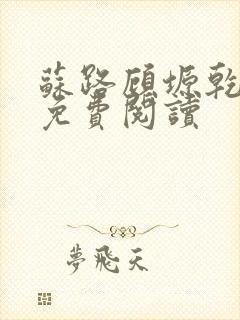 蘇路顧塬乾
免費閱讀
夢飛天